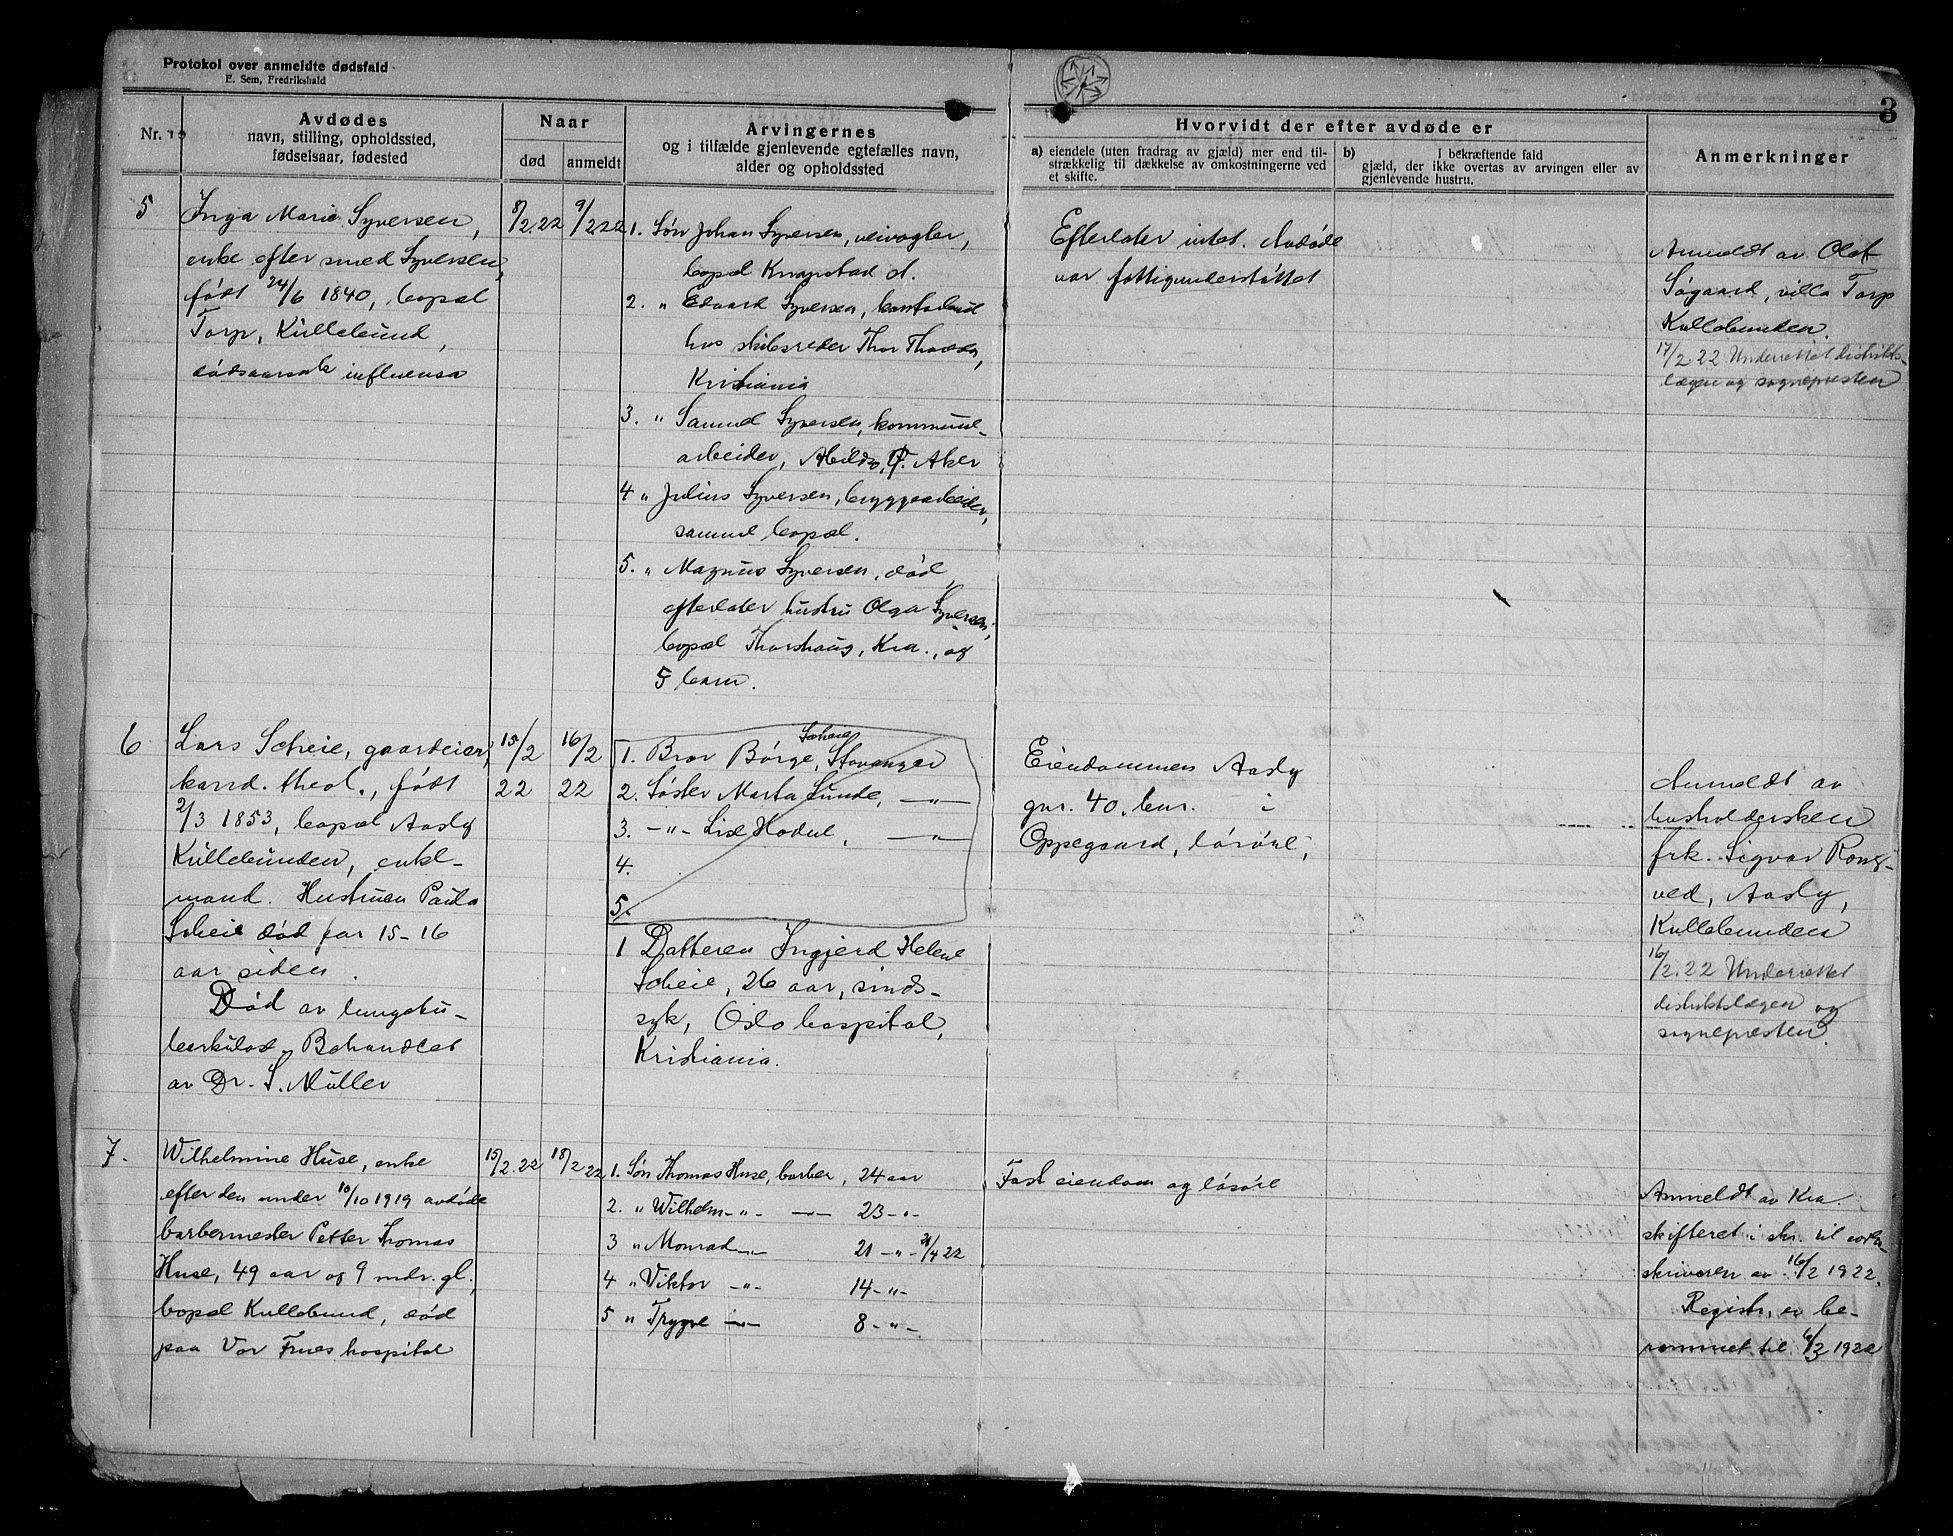 Protokol over anmeldte dødsfald
E. Sem, Fredrikshald
3
Nr.
Avdødes
navn, stilling, opholdssted,
fødselsaar, fødested
Naar
død
anmeldt
Arvingernes
og i tilfælde gjenlevende egtefælles navn,
alder og opholdssted
Hvorvidt der efter avdøde er
a) eiendele (uten fradrag av gjæld) mer end til-
strækkelig til dækkelse av omkostningerne ved
et skifte.
b) I bekræftende fald
gjæld, der ikke overtas av arvingen eller av
gjenlevende hustru.
Anmerkninger
5
Inga Marie Syversen,
enke efter smed Syversen,
født 24/6 1840, bopæl
Torp, Kullebund,
dødsaarsak influensa
8/2.22
9/2 22
1. Søn Johan Syversen, veivogter,
bopæl Knapstad st.
2. " Edvard Syversen,
hos skibsreder Thor
Kristiania
3. " Samuel Syversen, kommunal-
arbeider, Abildsø, Aker
4 " Julius Syversen, bryggearbeider,
samme bopæl.
5. " Magnus Syversen, død,
efterlater hustru Olga Syversen,
bopæl Thorshaug, Kra., og
5 barn.
Efterlater intet. Avdøde
var fattigunderstøttet
Anmeldt av Olaf
Søgaard, villa Torp
Kullebunden.
17/2.22 Underrettet distrikts-
lægen og sognepresten
6
Lars Scheie, gaardeier,
kand. theol., født
2/3 1853, bopæl Aasly
Kullebunden, enke-
mand. Hustruen Paula
Scheie død for 15-16
aar siden.
Død av lungetu-
berkulose. Behandlet
av Dr. S. Müller
15/2
22
16/2
22
Scheie
1. Bror Børge, Stavanger
2. Søster Marta Sunde, — " —
3. — " — Lise Hodul, — " —
4.
5.
1 Datteren Ingjerd Helene
Scheie, 26 aar, sinds-
syk, Oslo hospital,
Kristiania.
Eiendommen Aasly
gnr. 40, bnr. i
Oppegaard, løsøre,
Anmeldt av
husholdersken
frk. Sigvor Rong-
ved, Aasly,
Kullebunden
16/2.22 Underrettet
distriktslægen og
sognepresten.
7.
Wilhelmine Huse, enke
efter den under 10/10 1919 avdøde
barbermester Petter Thomas
Huse, 49 aar og 9 mdr. gl.,
bopæl Kullebund, død
paa Vor Frues hospital
15/2.22
18/2 22
1. Søn Thomas Huse, barber, 24 aar
2. " Wilhelm - " - — 23 - " -
3 " Monrad - " - 21 - " - 21/4 22
4 " Viktor - " - 14 - " -
5 " Trygve - " - 8 - " -
Fast eiendom og løsøre
Anmeldt av Kra.
skifteret i skr. til soren-
skriveren av 16/2 1922.
Registr. er be-
rammet til 6/3 1922